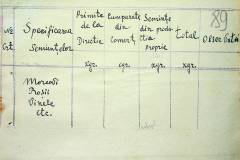 89
Nr. Crt. Specificarea Semințelor Primite de la Direcție Cumparate din Comerț Semințe din produ cția proprie Total Observații
kgr. cgr. kgr. kgr.
Morcovi
Prasii
Vinete
etc.